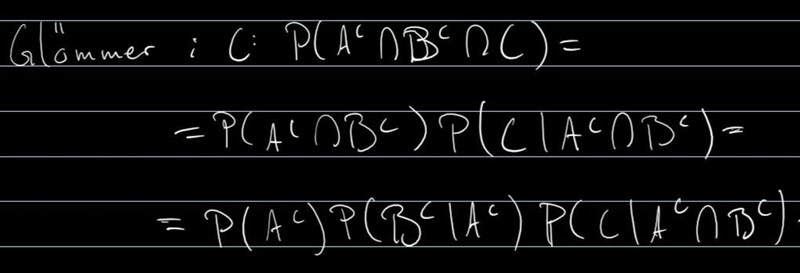 Glömmer i C: P(Aᶜ∩Bᶜ∩C) =
= P(Aᶜ∩Bᶜ) P(C|Aᶜ∩Bᶜ) =
= P(Aᶜ) P(Bᶜ|Aᶜ) P(C|Aᶜ∩Bᶜ) ·